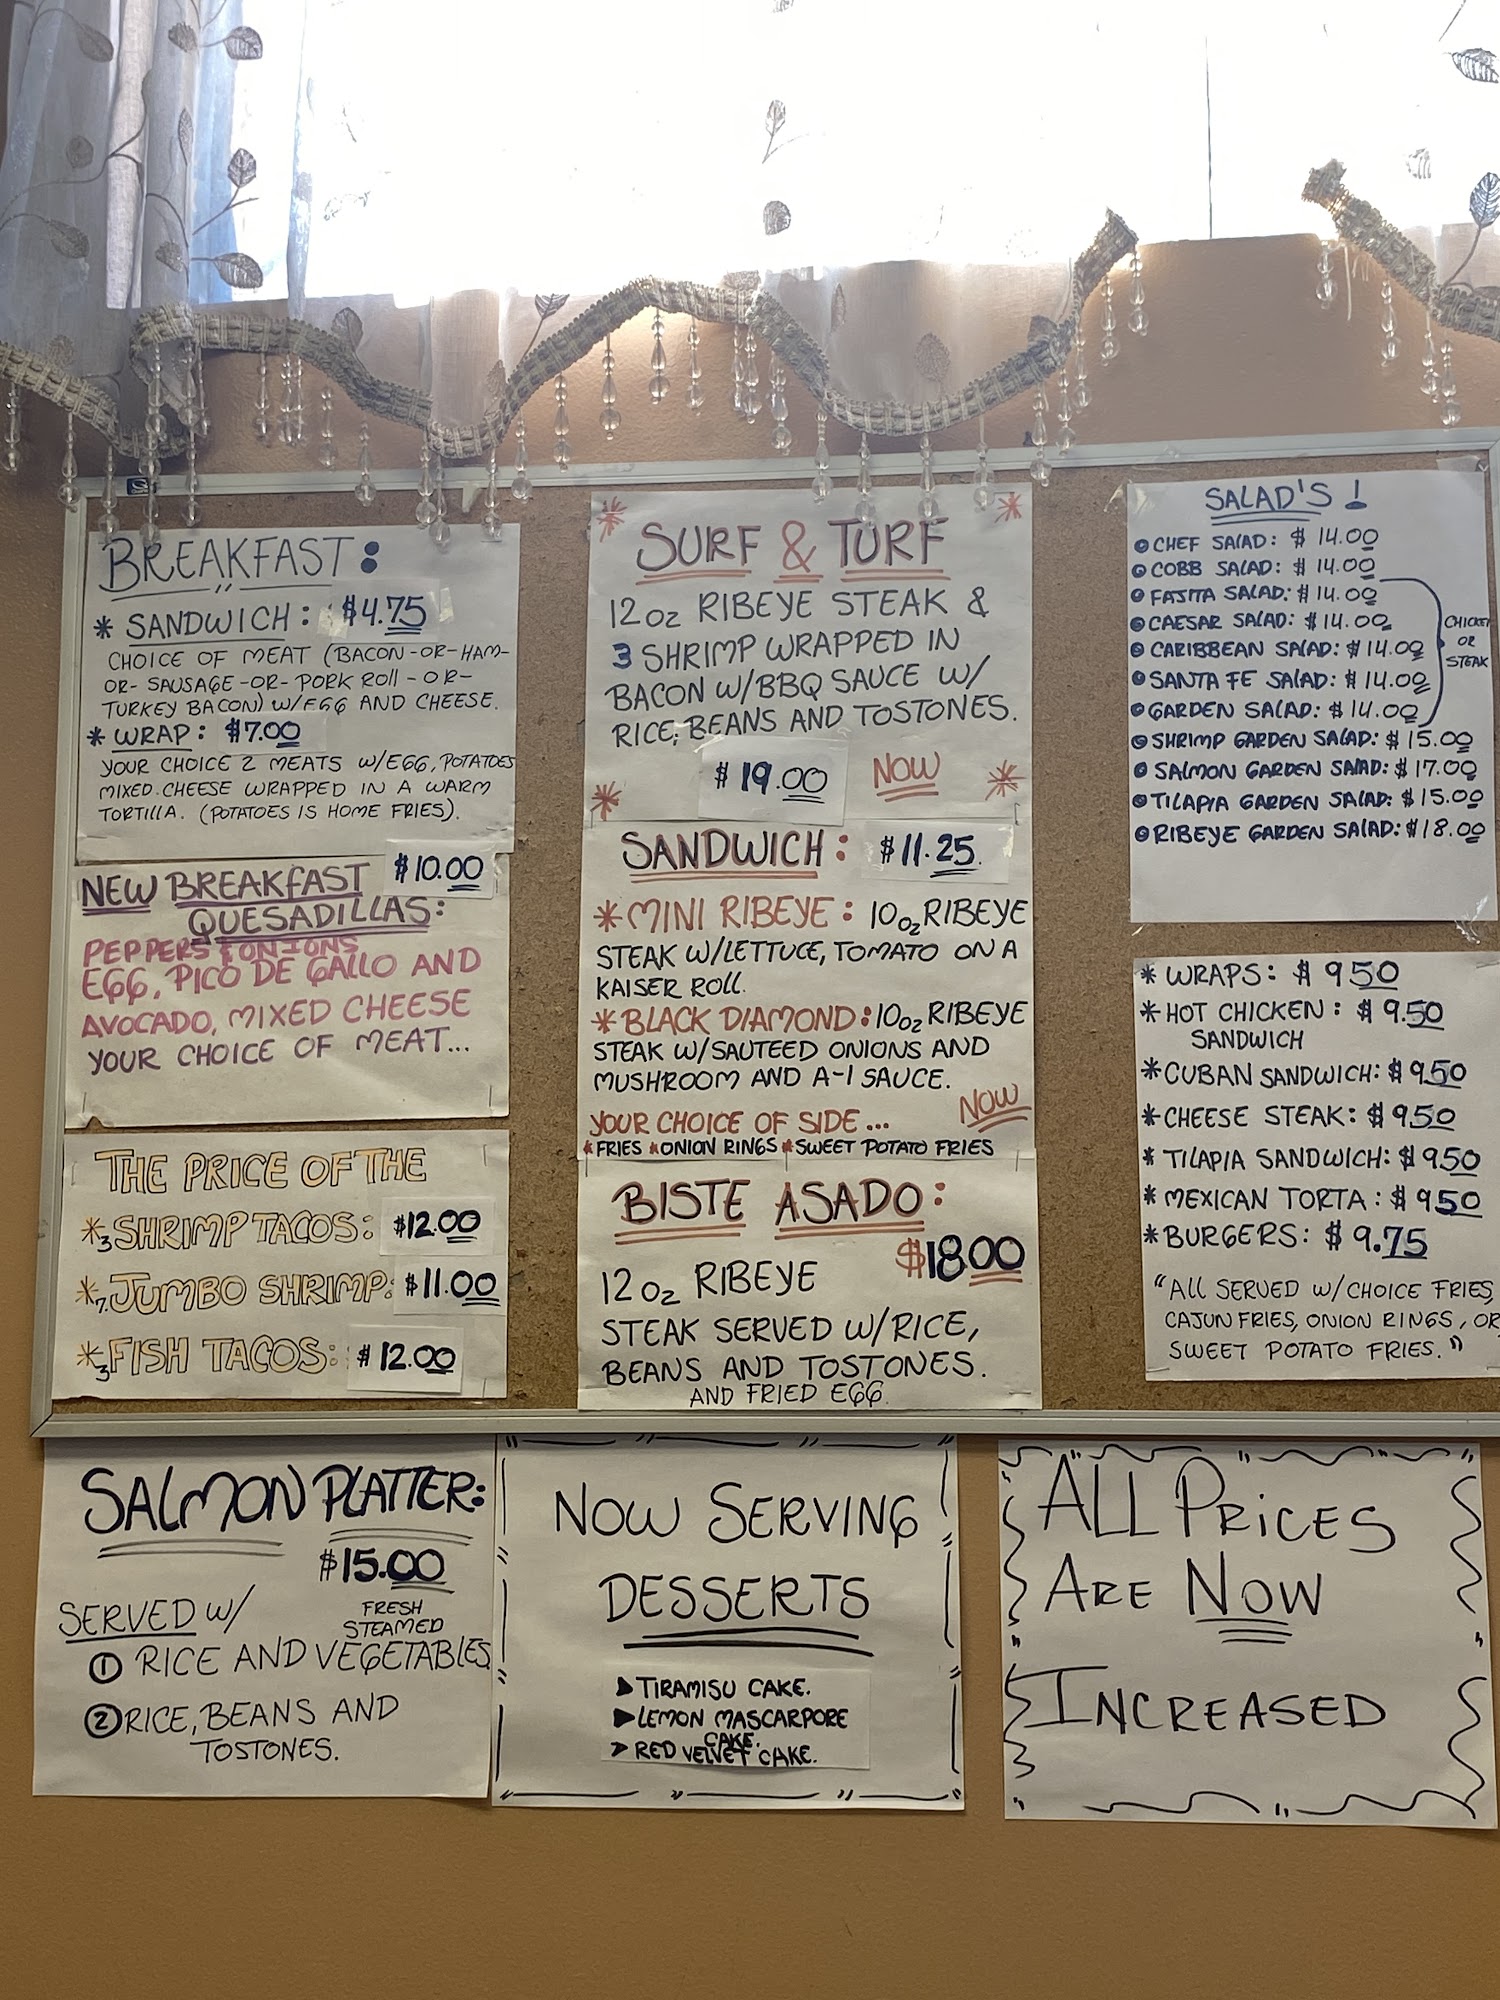 BREAKFAST:
* SANDWICH: $4.75
CHOICE OF MEAT (BACON-OR-HAM-
OR-SAUSAGE-OR-PORK ROLL-OR-
TURKEY BACON) W/EGG AND CHEESE.
* WRAP: $7.00
YOUR CHOICE 2 MEATS W/EGG, POTATOES
MIXED CHEESE WRAPPED IN A WARM
TORTILLA. (POTATOES IS HOME FRIES).
$10.00
NEW BREAKFAST
QUESADILLAS:
PEPPERS & ONIONS
EGG, PICO DE GALLO AND
AVOCADO, MIXED CHEESE
YOUR CHOICE OF MEAT...
THE PRICE OF THE
*3 SHRIMP TACOS: $12.00
*7. JUMBO SHRIMP: $11.00
*3 FISH TACOS: $12.00
SURF & TURF
12oz RIBEYE STEAK &
3 SHRIMP WRAPPED IN
BACON W/BBQ SAUCE W/
RICE, BEANS AND TOSTONES.
$19.00 NOW
SANDWICH: $11.25.
* MINI RIBEYE: 10oz RIBEYE
STEAK W/LETTUCE, TOMATO ON A
KAISER ROLL.
* BLACK DIAMOND: 10oz RIBEYE
STEAK W/SAUTEED ONIONS AND
MUSHROOM AND A-1 SAUCE.
NOW
YOUR CHOICE OF SIDE...
* FRIES * ONION RINGS * SWEET POTATO FRIES
BISTE ASADO:
$18.00
12oz RIBEYE
STEAK SERVED W/RICE,
BEANS AND TOSTONES.
AND FRIED EGG.
SALAD'S !
CHEF SALAD: $14.00
COBB SALAD: $14.00
FAJITA SALAD: $14.00
CAESAR SALAD: $14.00
CARIBBEAN SALAD: $14.00
SANTA FE SALAD: $14.00
GARDEN SALAD: $14.00
CHICKEN
OR
STEAK
SHRIMP GARDEN SALAD: $15.00
SALMON GARDEN SALAD: $17.00
TILAPIA GARDEN SALAD: $15.00
RIBEYE GARDEN SALAD: $18.00
* WRAPS: $9.50
* HOT CHICKEN: $9.50
SANDWICH
* CUBAN SANDWICH: $9.50
* CHEESE STEAK: $9.50
* TILAPIA SANDWICH: $9.50
* MEXICAN TORTA: $9.50
* BURGERS: $9.75
"ALL SERVED W/CHOICE FRIES,
CAJUN FRIES, ONION RINGS, OR
SWEET POTATO FRIES."
SALMON PLATTER:
$15.00
SERVED W/
FRESH
STEAMED
① RICE AND VEGETABLES
② RICE, BEANS AND
TOSTONES.
NOW SERVING
DESSERTS
➤ TIRAMISU CAKE.
➤ LEMON MASCARPORE
CAKE.
➤ RED VELVET CAKE.
ALL PRICES
ARE NOW
INCREASED